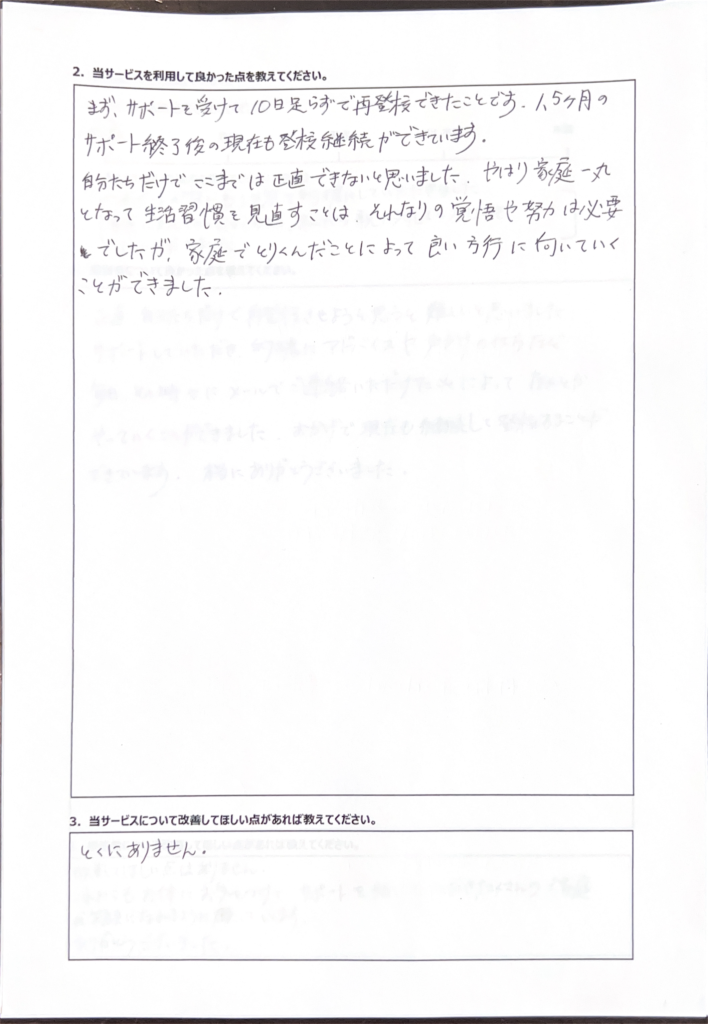 2. 当サービスを利用して良かった点を教えてください。
まず、サポートを受けて10日足らずで再登校できたことです. 1,5ヶ月の
サポート終了後の現在も登校継続ができています.
自分たちだけでここまでは正直できないと思いました. やはり家庭一丸
となって生活習慣を見直すことは、それなりの覚悟や努力は必要
でしたが、家庭でとりくんだことによって良い方行に向いていく
ことができました.
3. 当サービスについて改善してほしい点があれば教えてください。
とくにありません.